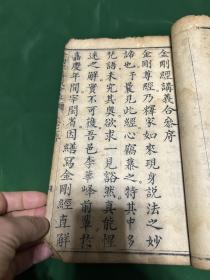 金剛經講義合參序
金剛尊經乃釋迦如來現身說法之妙
諦也予最見此經心竊慕之特其中多
梵語未究其奧欲求一見豁然真能悝
迷之解實不可後吾邑李華峰前輩於
嘉慶年間宰閩省因繕寫金剛經直解